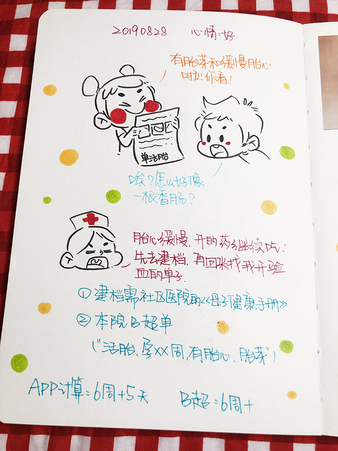 20190828 心情:好
有胎芽和缓慢胎心
单活胎
咦?怎么好像
一根香肠?
胎心缓慢,开的药继续吃。
先去建档,再回来找我开验
血的单子.
①建档需社区医院取《母子健康手册》
②本院B超单
("活胎,孕XX周,有胎心、胎芽")
APP计算:6周+5天 B超:6周+